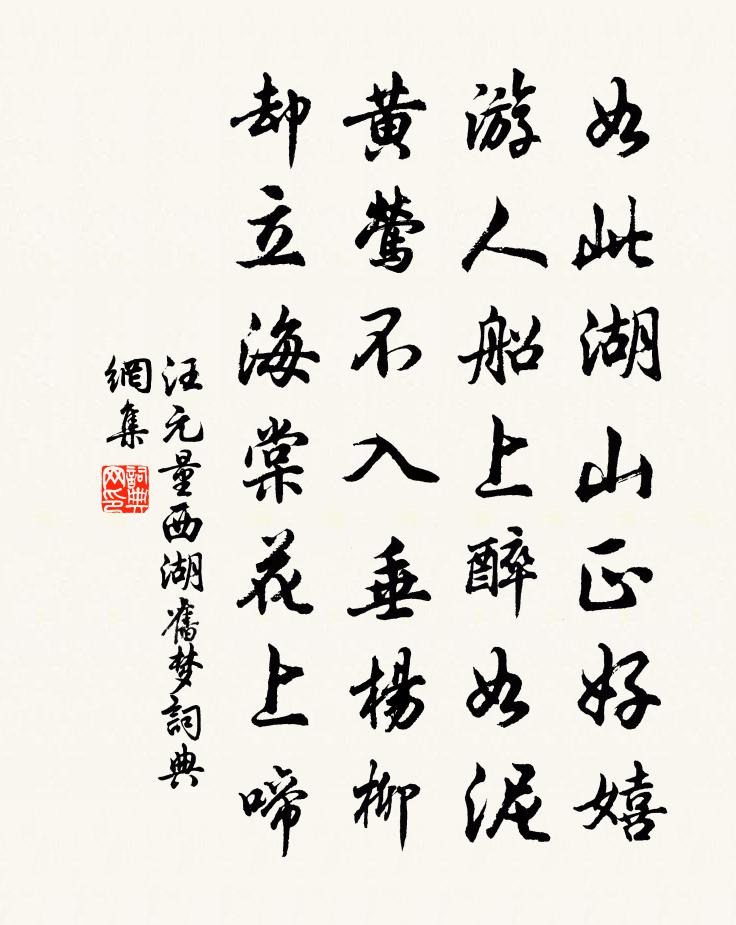 如此湖山正好嬉
游人船上醉如泥
黄莺不入垂楊柳
却立海棠花上啼
汪元量西湖舊梦詞典
網集
詞典
网印